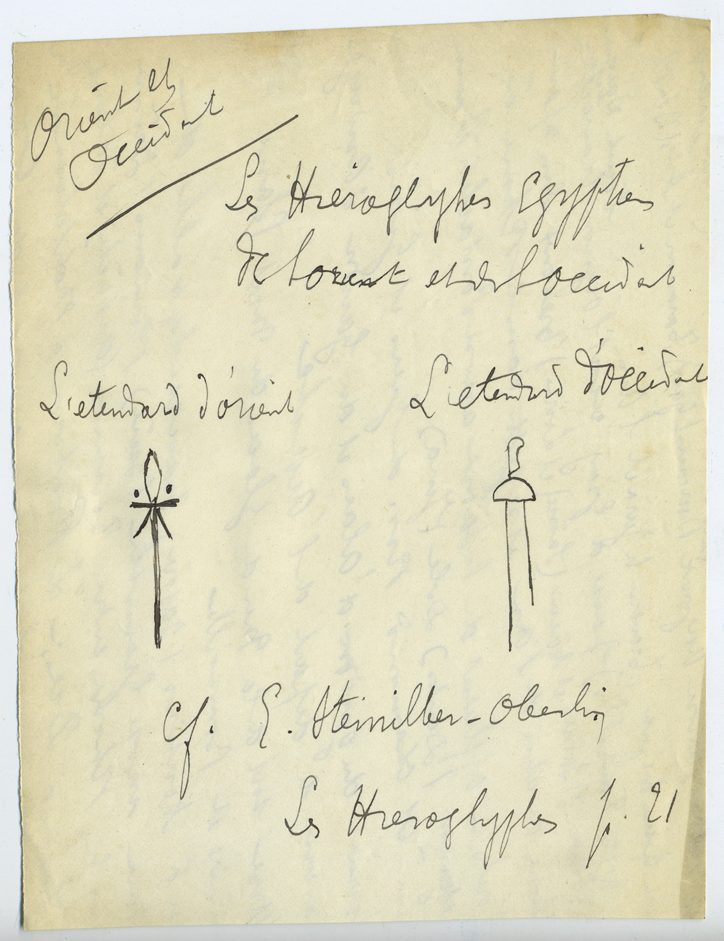 Orient et
Occident
Les Hiéroglyphes Egyptiens
de Lorient et de Loccident
L'etendard d'orient
L'etendard d'Occident
cf. E. Steinilber-Oberlin
Les Hieroglyphes p. 21